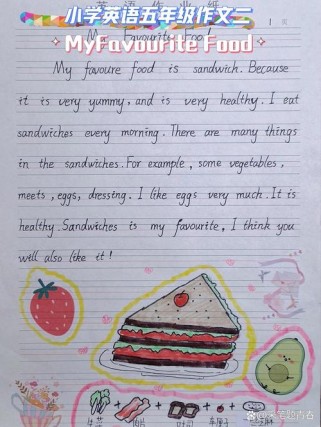 小学英语五年级作文二
My Favourite Food
1 页
My Favourite Food
My favoure food is sandwich. Because
it is very yummy, and is very healthy. I eat
sandwiches every morning. There are many things
in the sandwiches. For example, some vegetables,
meets, eggs, dressing. I like eggs very much. It is
healthy. Sandwiches is my favourite, I think you
will also like it!
生菜 + 培根 + 吐司 +